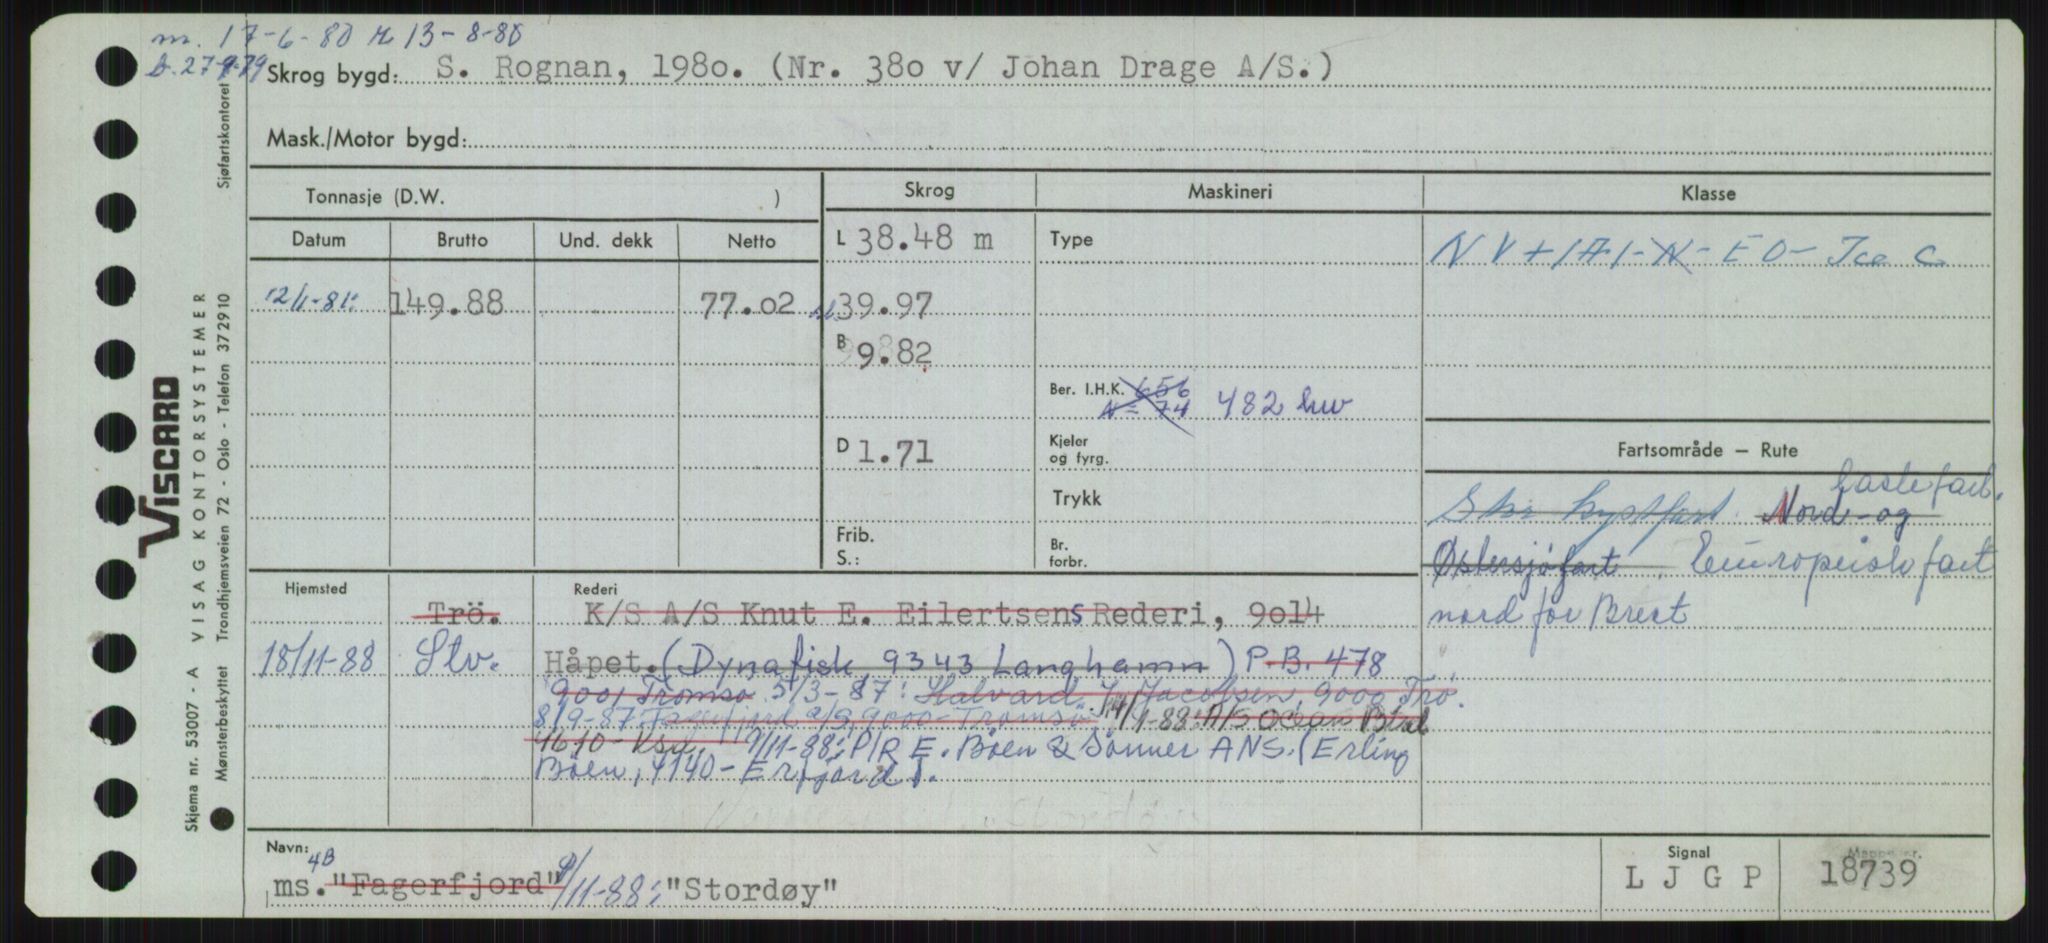 m. 17-6-80 13-8-80
Skrog bygd: S. Rognan, 1980. (Nr. 380 v/ Johan Drage A/S.)
Mask./Motor bygd:
Tonnasje (D.W. )
Skrog
Maskineri
Klasse
Datum Brutto Und. dekk Netto
L 38.48 m
Type
NV + 1A1 - N - EO - Ice C
12/1-81: 149.88 77.02
39.97
B 9.82
Ber. I.H.K. 656
N = 74 482 kw
D 1.71
Kjeler
og fyrg.
Fartsområde – Rute
Trykk
lastefart.
Stor kystfart. Nord- og
Frib.
S.:
Br.
forbr.
Østersjøfart. Europeisk fart
nord for Brest
Hjemsted
Rederi
Trö. K/S A/S Knut E. Eilertsens Rederi, 9014
18/11-88 Stv. Håpet. (Dynafisk, 9343 Langhamn) P.B. 478
9001 Tromsø. 5/3-87: Halvard Jacobsen, 9000 Trö.
8/9-87 Fagerfjord a/s, 9000-Tromsø. 14/1-88: A/S Ocean
9/11-88: P/R E. Böen & Sönner ANS. (Erling
Böen, 4140-Erfjord).
Navn:
4B
ms. "Fagerfjord" 9/11-88: "Stordøy"
Signal
L J G P
Mappe nr.
18739
VISCARD
VISAG KONTORSYSTEMER
Sjøfartskontoret
Skjema nr. 53007 - A
Mønsterbeskyttet Trondhjemsveien 72 - Oslo - Telefon 372910